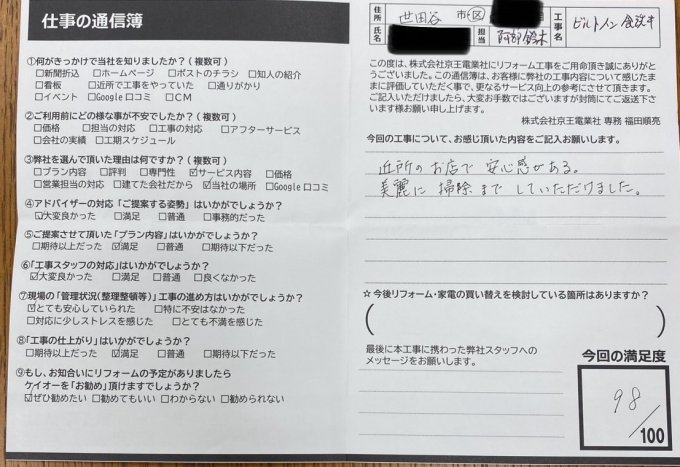 仕事の通信簿
①何がきっかけで当社を知りましたか？(複数可)
□新聞折込 □ホームページ □ポストのチラシ □知人の紹介
□看板 □近所で工事をやっていた □通りがかり
□イベント □Google口コミ □CM
②ご利用前にどの様な事が不安でしたか？(複数可)
□価格 □担当の対応 □工事の対応 □アフターサービス
□会社の実績 □工期スケジュール
③弊社を選んで頂いた理由は何ですか？(複数可)
□プラン内容 □評判 □専門性 ☑サービス内容 □価格
□営業担当の対応 □建てた会社だから ☑当社の場所 □Google口コミ
④アドバイザーの対応「ご提案する姿勢」はいかがでしょうか？
☑大変良かった □満足 □普通 □事務的だった
⑤ご提案させて頂いた「プラン内容」はいかがでしょうか？
□期待以上だった ☑満足 □普通 □期待以下だった
⑥「工事スタッフの対応」はいかがでしょうか？
☑大変良かった □満足 □普通 □良くなかった
⑦現場の「管理状況(整理整頓等)」工事の進め方はいかがでしょうか？
☑とても安心していられた □特に不安はなかった
□対応に少しストレスを感じた □とても不満を感じた
⑧「工事の仕上がり」はいかがでしょうか？
□期待以上だった ☑満足 □普通 □期待以下だった
⑨もし、お知合いにリフォームの予定がありましたら
ケイオーを「お勧め」頂けますでしょうか？
☑ぜひ勧めたい □勧めてもいい □わからない □勧められない
住所 世田谷 市・区
氏名 担当 阿部 鈴木
工事名 ビルトイン食洗キ
この度は、株式会社京王電業社にリフォーム工事をご用命頂き誠にありがとう
ございました。この通信簿は、お客様に弊社の工事内容について感じたまま
に評価していただく事で、更なるサービス向上の参考にさせて頂きます。
ご記入いただけましたら、大変お手数ではございますが封筒にてご返送下さい
ます様お願い申し上げます。
株式会社京王電業社 専務 福田順亮
今回の工事について、お感じ頂いた内容をご記入お願いします。
近所のお店で安心感がある。
美麗に掃除までしていただけました。
☆今後リフォーム・家電の買い替えを検討している箇所はありますか？
最後に本工事に携わった弊社スタッフへの
メッセージをお願いします。
今回の満足度
98
/100